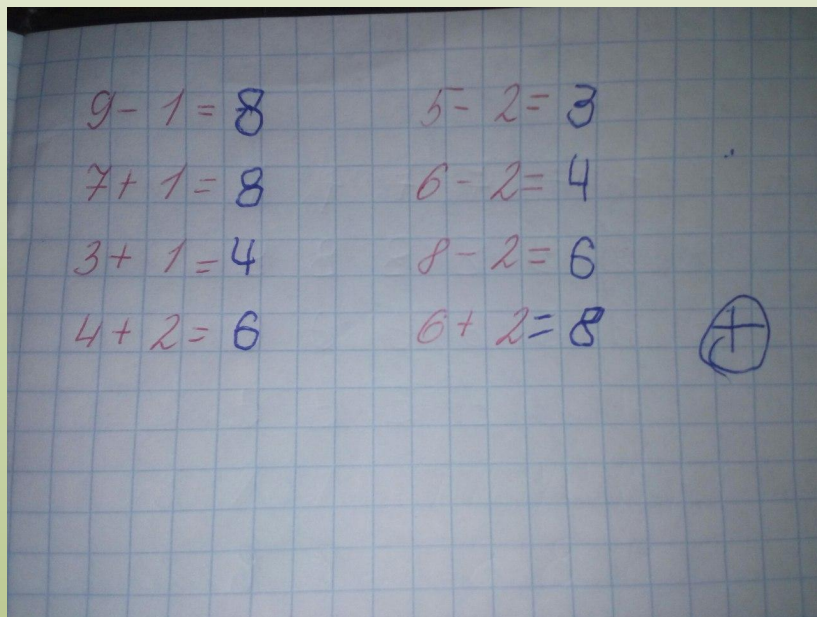 9 - 1 = 8
7 + 1 = 8
3 + 1 = 4
4 + 2 = 6
5 - 2 = 3
6 - 2 = 4
8 - 2 = 6
6 + 2 = 8
+